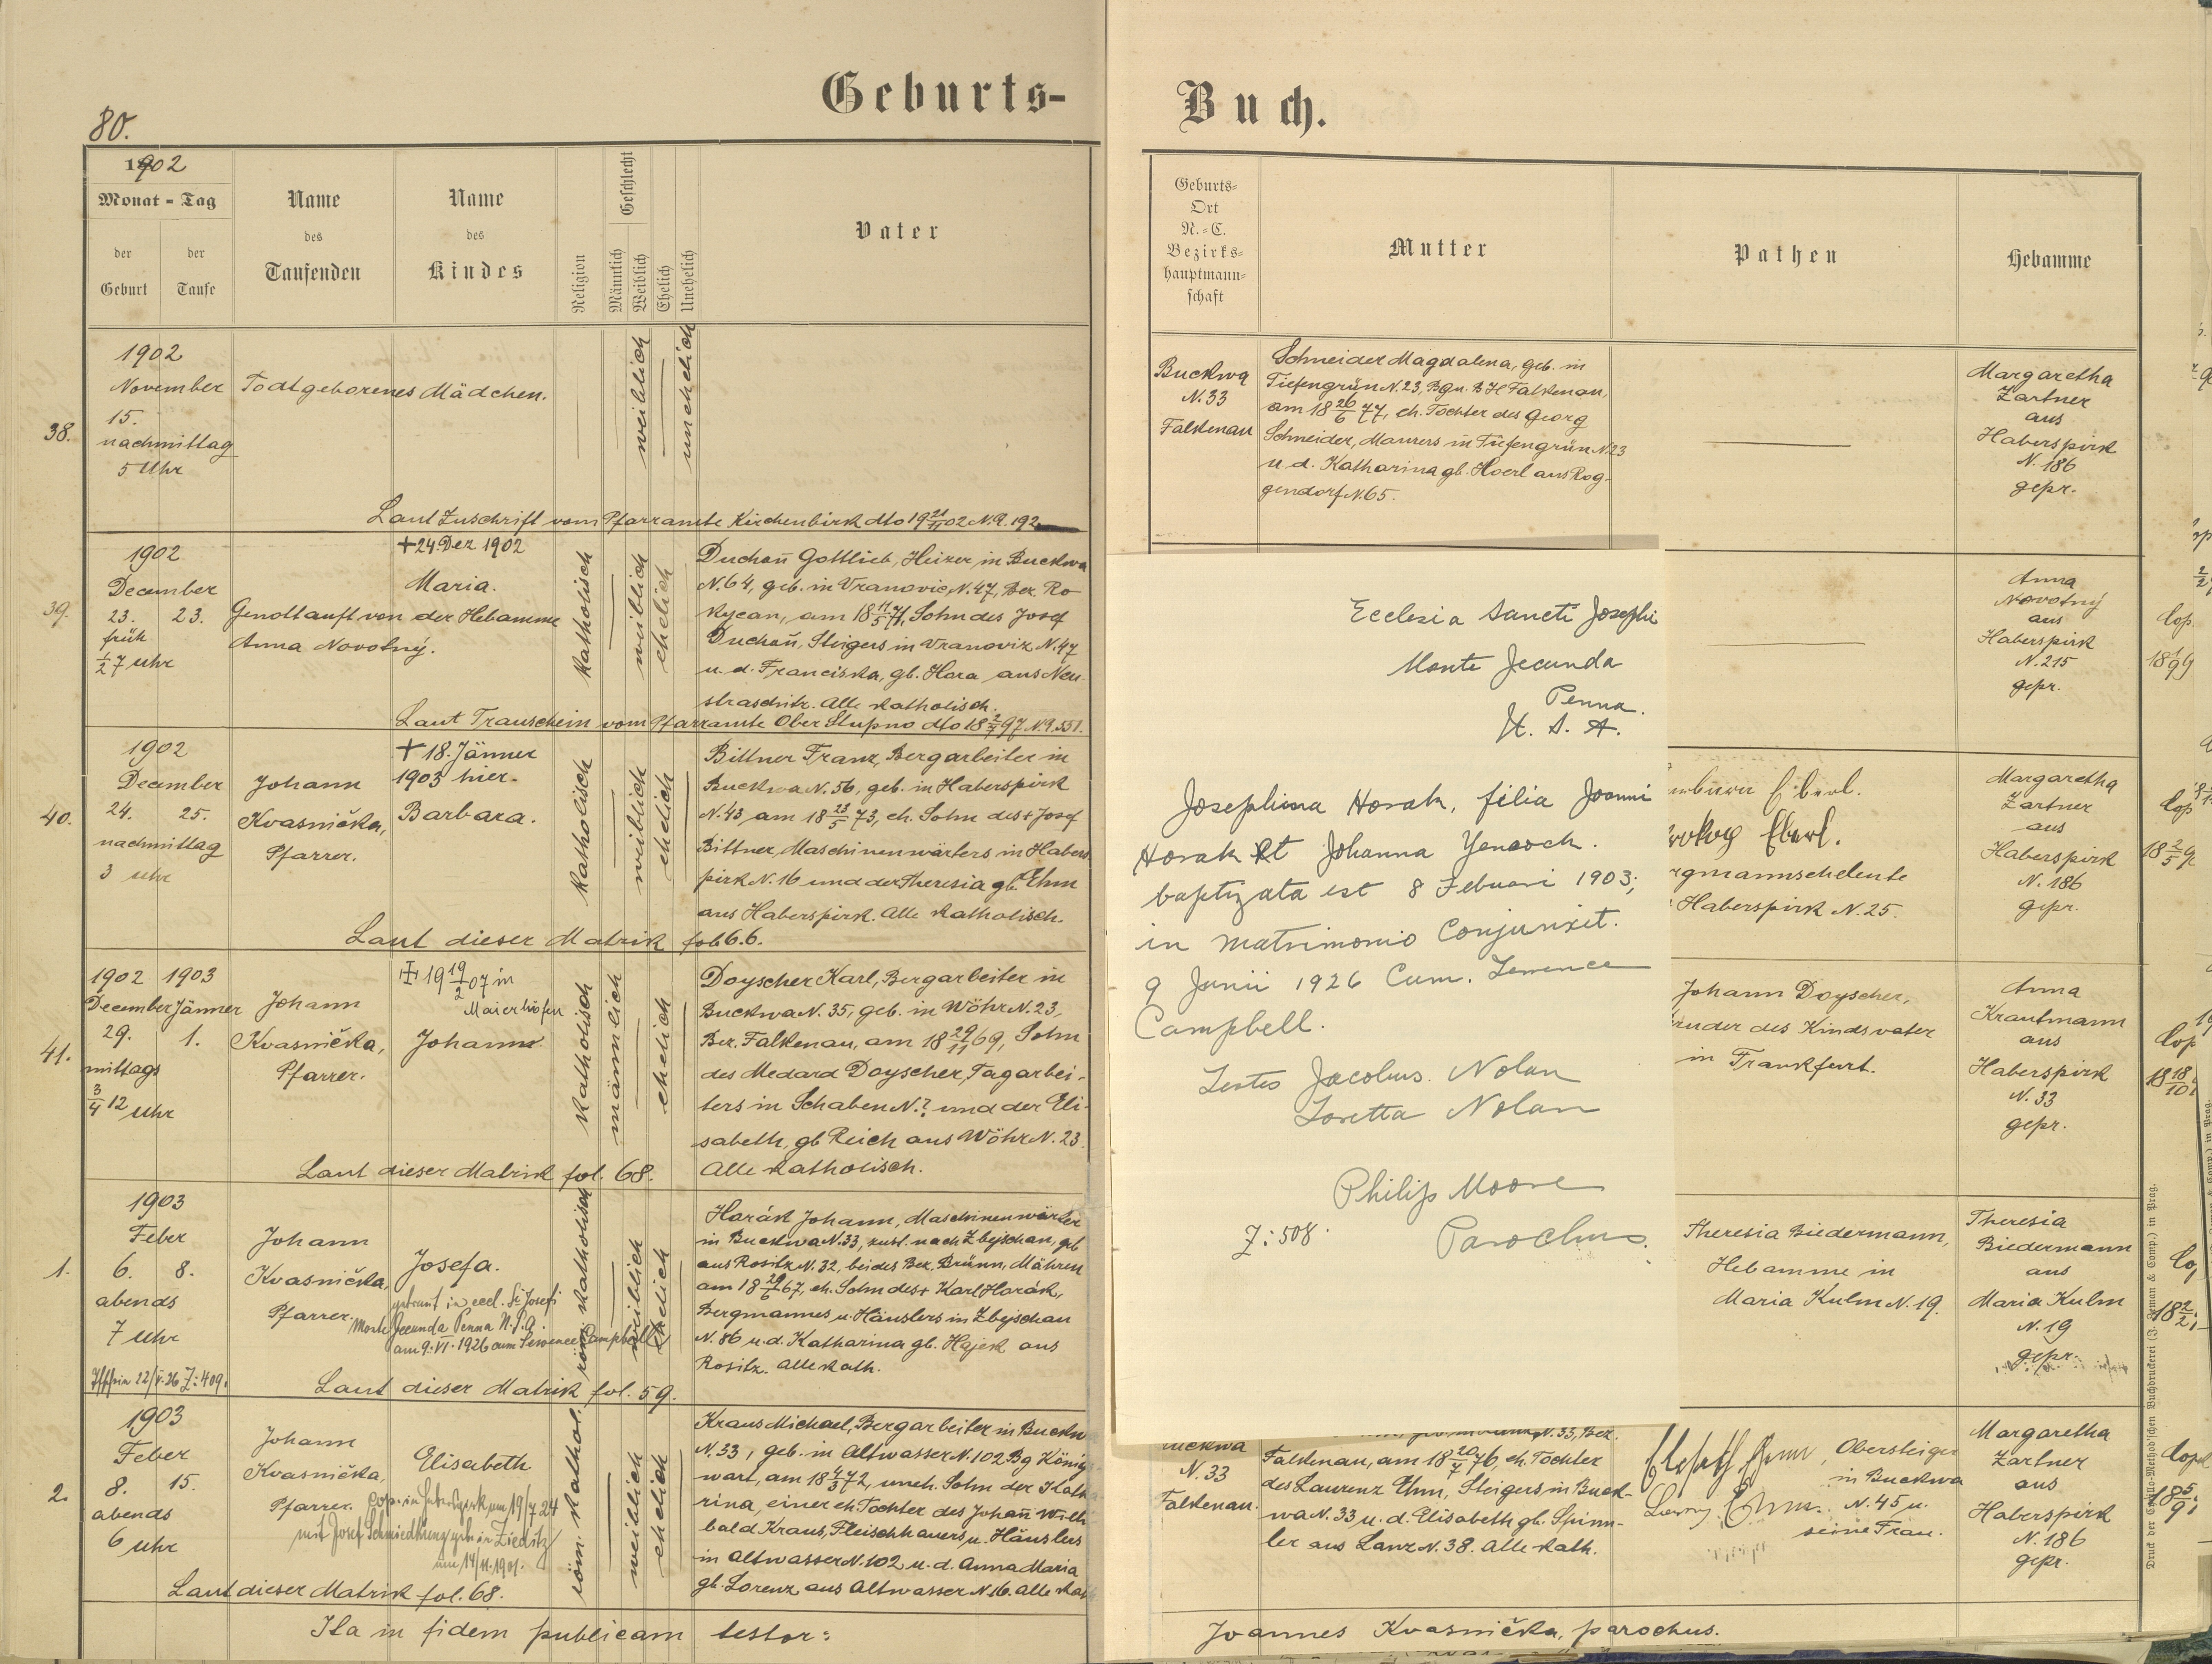 80.
Geburts-
1902
Monat = Tag
der Geburt
der Taufe
Name
des
Taufenden
Name
des
Kindes
Religion
Geschlecht
Männlich
Weiblich
Ehelich
Unehelich
Vater
38.
1902
November
15.
nachmittag
5 Uhr
Todtgeborenes Mädchen.
weiblich
unehelich
Laut Zuschrift vom Pfarramte Kirchenbirk dto 19 21/11 02 N.E. 192
39.
1902
December
23. 23.
früh
1/2 7 uhr
Genottauft von der Hebamme
Anna Novotný.
+ 24. Dez 1902
Maria.
katholisch
weiblich
ehelich
Duchoň Gottlieb, Heizer in Buckwa
N. 64, geb. in Vranovic, N. 47, Bez. Ro
kycan, am 18 11/5 71, Sohn des Josef
Duchoň, Steigers in Vranoviz N. 47
u. d. Franciska, gb. Hora aus Neu
straschitz. Alle katholisch.
Laut Trauschein vom Pfarramte Ober Stupno dto 18 2/7 97 N.E. 551.
40.
1902
December
24. 25.
nachmittag
3 uhr
Johann
Kvasnička,
Pfarrer.
+ 18. Jänner
1903 hier.
Barbara.
katholisch
weiblich
ehelich
Bittner Franz, Bergarbeiter in
Buckwa N. 56, geb. in Haberspirk
N. 43, am 18 23/5 73, eh. Sohn des + Josef
Bittner, Maschinenwärters in Habers
pirk N. 16 und der Theresia gb. Ehm
aus Haberspirk. Alle katholisch.
Laut dieser Matrik fol. 66.
41.
1902 1903
December Jänner
29. 1.
mittags
3/4 12 uhr
Johann
Kvasnička,
Pfarrer.
19 19/2 07 in
Maierhöfen
Johann.
katholisch
männlich
ehelich
Doyscher Karl, Bergarbeiter in
Buckwa N. 35, geb. in Wöhr N. 23,
Bez. Falkenau, am 18 29/11 69, Sohn
des Medard Doyscher, Tagarbei-
ters in Schaben N. ? und der Eli-
sabeth, gb Reich aus Wöhr N. 23.
Alle katholisch.
Laut dieser Matrik fol. 68.
1.
1903
Feber
6. 8.
abends
7 uhr
Johann
Kvasnička,
Pfarrer.
Josefa.
getraut in eccl. St. Josefi
Monte Jecunda Penna N.S.A.
am 9. VI. 1926 cum Terrence Campbell
Z: 409.
röm. katholisch
weiblich
ehelich
Horák Johann, Maschinenwärter
in Buckwa N. 33, zust. nach Zbejschau, geb
aus Rositz N. 32, beides Bez. Brünn, Mähren
am 18 29/6 67, eh. Sohn des + Karl Horák,
Bergmannes u. Häuslers in Zbejschau
N. 86 u. d. Katharina gb. Hajek aus
Rositz. Alle kath.
Laut dieser Matrik fol. 59.
2.
1903
Feber
8. 15.
abends
6 uhr
Johann
Kvasnička,
Pfarrer.
Elisabeth
cop. in Haberspirk am 19/7 24
mit Josef Schmiedkunz geb. in Zieditz
am 14/11. 1901.
röm. kathol.
weiblich
ehelich
Kraus Michael, Bergarbeiter in Buckw
N. 33, geb. in Altwasser N. 102 Bg König
wart, am 18 4/3 72, uneh. Sohn der Katha
rina, einer eh. Tochter des Johañ Willi
bald Kraus, Fleischhauers u. Häuslers
in Altwasser N. 102 u. d. Anna Maria
gb. Lorenz aus Altwasser N. 16. Alle kath
Laut dieser Matrik fol. 68.
Ita in fidem publicam testor:
Buch.
Geburts=
Ort
N.=C.
Bezirks=
hauptmann=
schaft
Mutter
Pathen
Hebamme
Buckwa
N. 33
Falkenau
Schneider Magdalena, geb. in
Tiefengrün N. 23, Bgn. BH Falkenau,
am 18 26/6 77, eh. Tochter des Georg
Schneider, Maurers in Tiefengrün N. 23
u. d. Katharina gb. Hoerl aus Rog-
gendorf N. 65.
Margaretha
Zartner
aus
Haberspirk
N. 186
gepr.
Ecclesia Sancti Josephi
Monte Jecunda
Penna.
U. S. A.
Josephina Horak, filia Joanni
Horak Et Johanna Yenesch.
baptizata est 8 Februari 1903;
in matrimonio Conjunxit.
9 Junii 1926 Cum. Terrence
Campbell.
Testes Jacobus. Nolan
Loretta Nolan
Philip Moore
Parochus.
Z: 508.
Anna
Novotný
aus
Haberspirk
N. 215
gepr.
Eberl.
Eberl.
rgmannseheleute
Haberspirk N. 25.
Margaretha
Zartner
aus
Haberspirk
N. 186
gepr.
Johann Doyscher,
ruder des Kindsvater
in Frankfurt.
Anna
Krautmann
aus
Haberspirk
N. 33
gepr.
Theresia Biedermann,
Hebamme in
Maria Kulm N. 19.
Theresia
Biedermann
aus
Maria Kulm
N. 19
gepr.
uckwa
N. 33
Falkenau.
N. 33, Bez.
Falkenau, am 18 20/7 76, eh. Tochter
des Laurenz Ehm, Steigers in Buck-
wa N. 33 u. d. Elisabeth gb. Spinn-
ler aus Lanz N. 38. Alle kath.
Obersteiger
in Buckwa
N. 45 u.
seine Frau.
Margaretha
Zartner
aus
Haberspirk
N. 186
gepr.
Joannes Kvasnička, parochus.
Druck der Cyrillo-Method'schen Buchdruckerei (J. Zeman & Comp.) in Prag.